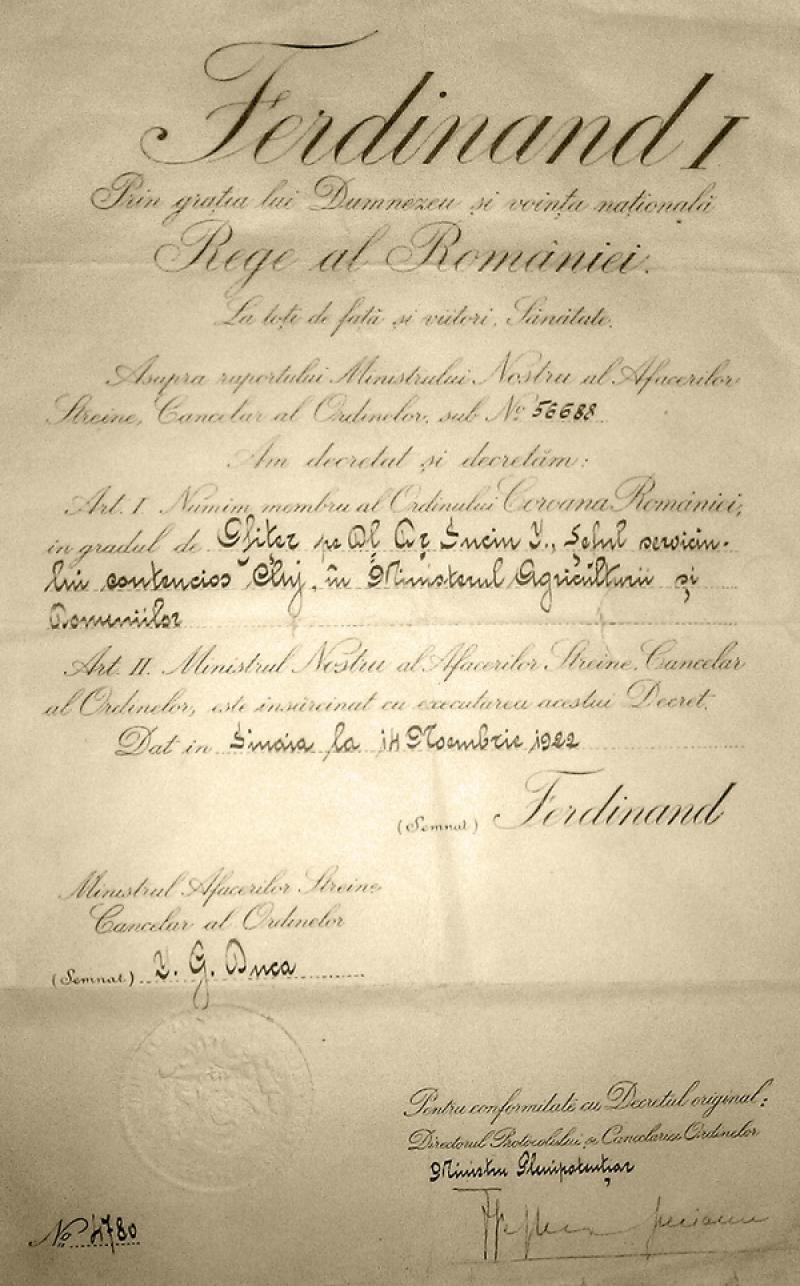 Ferdinand I
Prin grația lui Dumnezeu și voința națională
Rege al României.
La toți de față și viitori, Sănătate.
Asupra raportului Ministrului Nostru al Afacerilor
Streine, Cancelar al Ordinelor, sub № 56688
Am decretat și decretăm:
Art. I. Numim membru al Ordinului Coroana României,
in gradul de Ofițer pe Dl Suciu I., Șeful serviciu-
lui contencios Cluj, în Ministerul Agriculturii și
Domeniilor
Art. II. Ministrul Nostru al Afacerilor Streine, Cancelar
al Ordinelor, este însărcinat cu executarea acestui Decret.
Dat in Sinaia la 14 Noembrie 1922
(Semnat) Ferdinand
Ministrul Afacerilor Streine
Cancelar al Ordinelor
(Semnat) I. G. Duca
Pentru conformitate cu Decretul original:
Directorul Protocolului și Cancelariei Ordinelor
Ministru Plenipotențiar
№ 4780